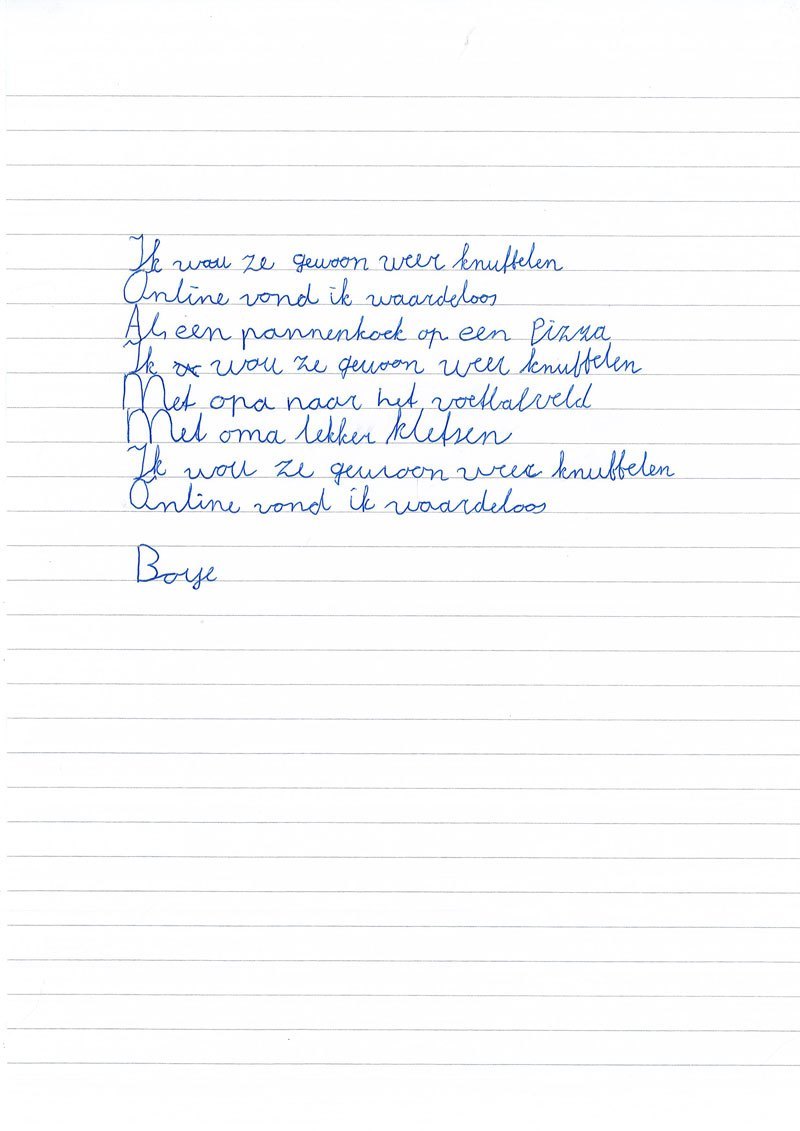 Ik wou ze gewoon weer knuffelen
Online vond ik waardeloos
Als een pannenkoek op een Pizza
Ik wou ze gewoon weer knuffelen
Met opa naar het voetbalveld
Met oma lekker kletsen
Ik wou ze gewoon weer knuffelen
Online vond ik waardeloos
Boye